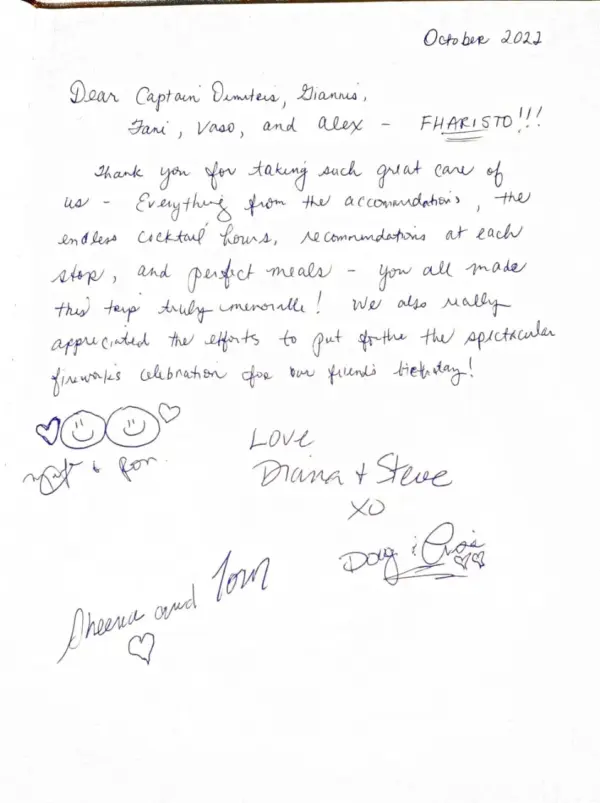 October 2022
Dear Captain Dimitris, Giannis,
Fani, Vaso, and Alex - FHARISTO!!!
Thank you for taking such great care of
us - Everything from the accomendations, the
endless cocktail hours, recommendations at each
stop, and perfect meals - you all made
this trip truly memorable! We also really
appreciated the efforts to put forthe the spectacular
fireworks celebration for our friends birthday!
& Ron
Love
Diana + Steve
XO
Doug &
Sheena and Tom